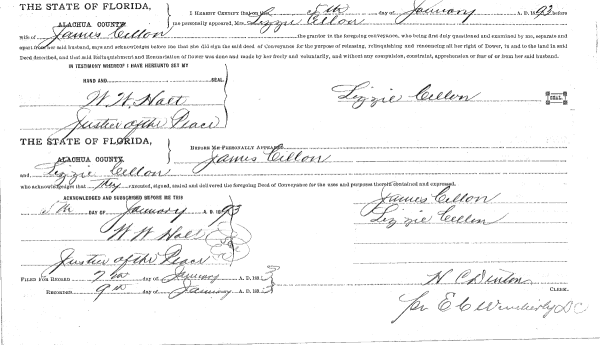 THE STATE OF FLORIDA,
ALACHUA COUNTY.
I HEREBY CERTIFY that on the 5th day of January A. D. 1893 before
me personally appeared, Mrs. Lizzie Cellon
wife of James Cellon the grantor in the foregoing conveyance, who being first duly questioned and examined by me, separate and
apart from her said husband, says and acknowledges before me that she did sign the said deed of Conveyance for the purpose of releasing, relinquishing and renouncing all her right of Dower, in and to the land in said
Deed described, and that said Relinquishment and Renunciation of Dower was done and made by her freely and voluntarily, and without any compulsion, constraint, apprehension or fear of or from her said husband.
IN TESTIMONY WHEREOF I HAVE HEREUNTO SET MY
HAND AND SEAL.
W. W. Hall Lizzie Cellon SEAL
Justice of the Peace
THE STATE OF FLORIDA,
ALACHUA COUNTY.
BEFORE ME PERSONALLY APPEARED
James Cellon
and Lizzie Cellon
who acknowledges that They executed, signed, sealed and delivered the foregoing Deed of Conveyance for the uses and purposes therein contained and expressed.
ACKNOWLEDGED AND SUBSCRIBED BEFORE ME THIS James Cellon
5th DAY OF January A. D. 1893 Lizzie Cellon
W. W. Hall
Justice of the Peace
FILED FOR RECORD 7th day of January A. D. 1893 H C Denton
RECORDED 9th day of January A. D. 1893 CLERK.
per E C Wimberly D C